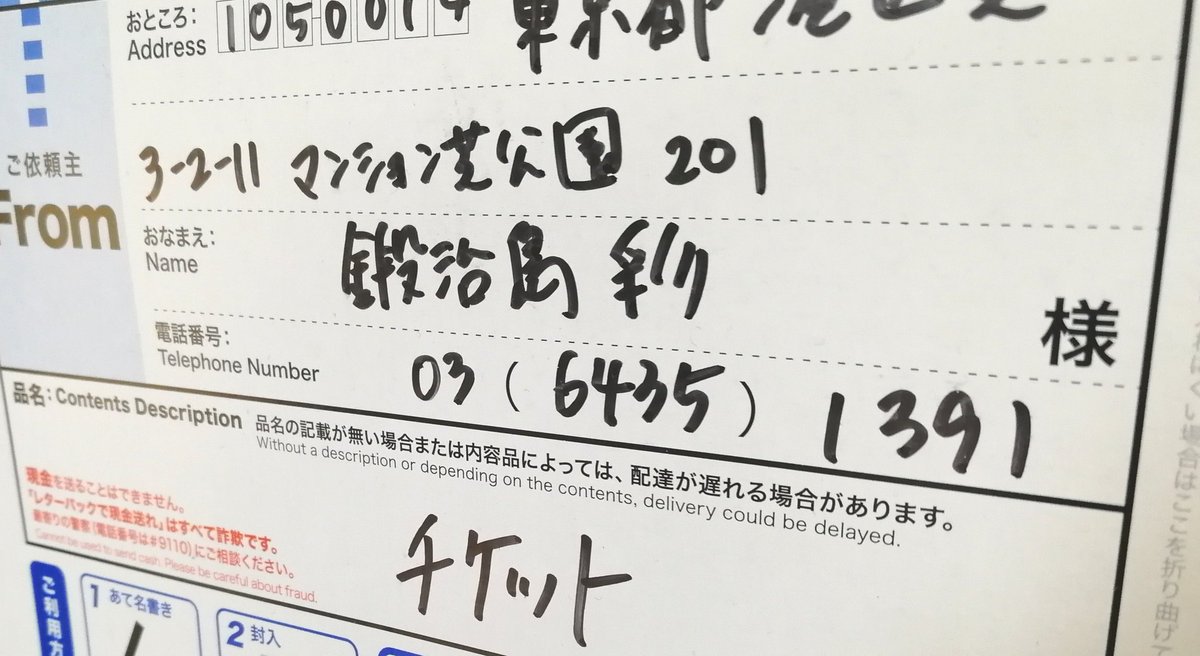 おところ:
Address
1050014 東京都港区芝
3-2-11 マンション芝公園 201
ご依頼主
From
おなまえ:
Name
鍛治島 彩
様
電話番号:
Telephone Number
03 ( 6435 ) 1391
品名: Contents Description
品名の記載が無い場合または内容品によっては、配達が遅れる場合があります。
Without a description or depending on the contents, delivery could be delayed.
現金を送ることはできません。
「レターパックで現金送れ」はすべて詐欺です。
最寄りの警察(電話番号は#9110)にご相談ください。
Cannot be used to send cash. Please be careful about fraud.
チケット
ご利用方
1 あて名書き
2 封入